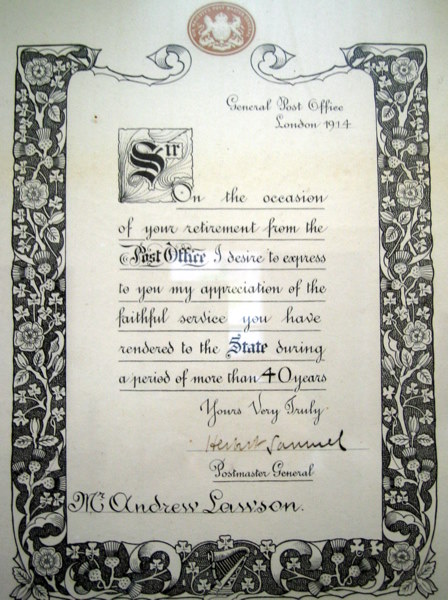 General Post Office
London 1914
Sir
On the occasion
of your retirement from the
Post Office I desire to express
to you my appreciation of the
faithful service you have
rendered to the State during
a period of more than 40 years
Yours Very Truly
Herbert Samuel
Postmaster General
Mr Andrew Lawson.